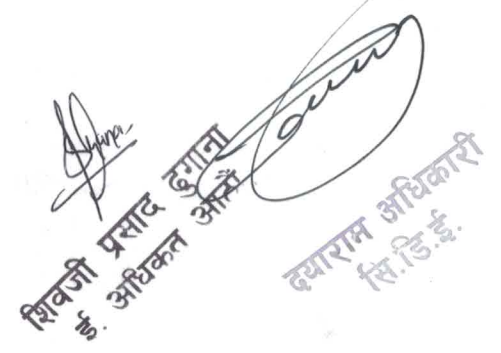 शिवजी प्रसाद दुगाना
ई. अधिकृत आठौं
दयाराम अधिकारी
सि.डि.ई.